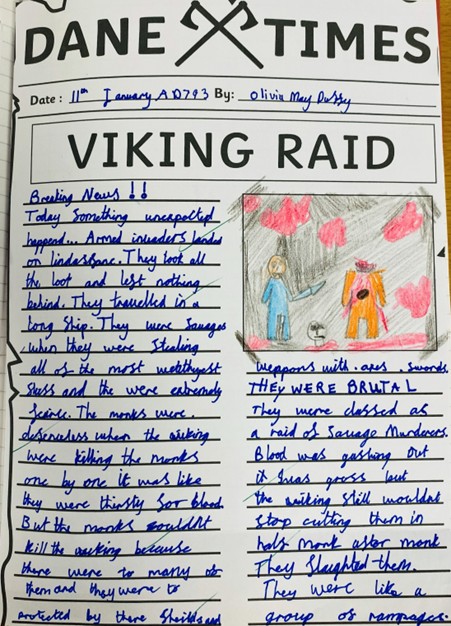 DANE TIMES
Date: 11th January AD793 By: Olivia May
VIKING RAID
Breaking News !!
Today Something unexpolted
happend... Armed invaders landed
on lindasfane. They took all
the loot and left nothing
behind. They travelled in a
Long Ship. They were Savages
when they were Stealing
all of the most
and the were extremly
fearce. The monks were.
defenseless when the vikking
were killing the monks
one by one it was like
they were thirsty for blood.
But the monks couldnt
kill the vikking because
there were to many of
them and they were to
protected by there Sheilds and
weppons with. axes. swords.
THEY WERE BRUTAL
They were classed as
a raid of Savage Murderers.
Blood was gashing out
it was gross but
the vikking Still wouldnt
Stop cutting them in
half monk after monk
They Slaghted them.
They were like a
group of rampages.